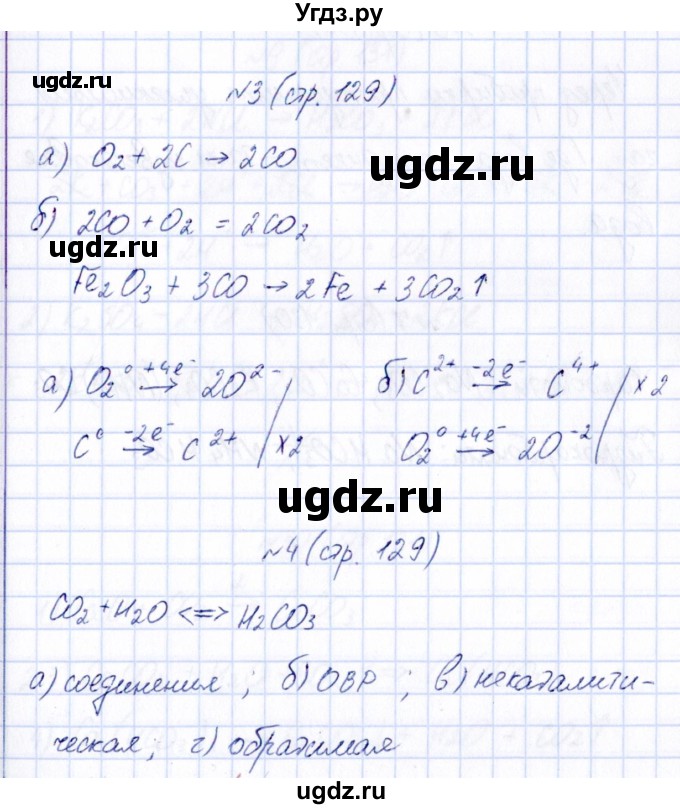 Угдз.ру
ugdz.ru
№3 (стр. 129)
а) O₂ + 2C → 2CO
ugdz.ru
б) 2CO + O₂ = 2CO₂
ugdz.ru
Fe₂O₃ + 3CO → 2Fe + 3CO₂↑
а) O₂⁰ +4e⁻→ 2O²⁻ б) C²⁺ -2e⁻→ C⁴⁺ | x2
C⁰ -2e⁻→ C²⁺ | x2 O₂⁰ +4e⁻→ 2O⁻²
ugdz.ru
№4 (стр. 129)
CO₂ + H₂O <=> H₂CO₃
а) соединенья ; б) ОВР ; в) некаталити-
ческая ; г) обратимая
ugdz.ru